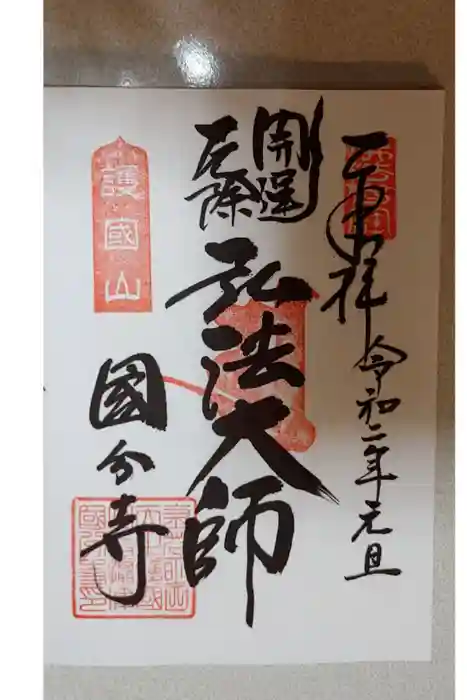 奉拝
令和二年元旦
開運
厄除
弘法大師
護國山
國分寺